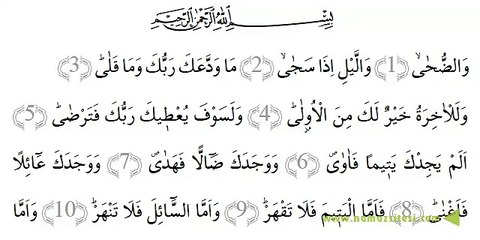 بِسْمِ اللّٰهِ الرَّحْمٰنِ الرَّحِيمِ
وَالضُّحٰىۙ (1) وَالَّيْلِ اِذَا سَجٰىۙ (2) مَا وَدَّعَكَ رَبُّكَ وَمَا قَلٰىۜ (3)
وَلَلْاٰخِرَةُ خَيْرٌ لَكَ مِنَ الْاُو۫لٰىۜ (4) وَلَسَوْفَ يُعْط۪يكَ رَبُّكَ فَتَرْضٰىۜ (5)
اَلَمْ يَجِدْكَ يَت۪يمًا فَاٰوٰىۖ (6) وَوَجَدَكَ ضَٓالًّا فَهَدٰىۖ (7) وَوَجَدَكَ عَٓائِلًا
فَاَغْنٰىۜ (8) فَاَمَّا الْيَت۪يمَ فَلَا تَقْهَرْۜ (9) وَاَمَّا السَّٓائِلَ فَلَا تَنْهَرْۜ (10) وَاَمَّا
www.namazsitesi.com